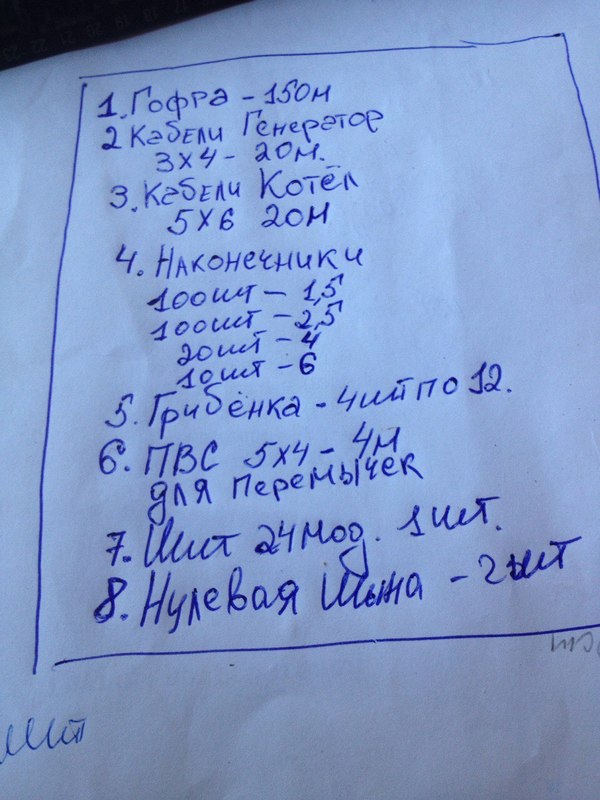 1. Гофра - 150м
2 Кабели Генератор
3х4 - 20м.
3. Кабели Котёл
5х6 20м
4. Наконечники
100шт - 1,5
100шт - 2,5
20шт - 4
10шт - 6
5. Грибёнка - 4шт по 12.
6. ПВС 5х4 - 4м
для перемычек
7. Щит 24 мод. 1шт.
8. Нулевая шына - 2шт